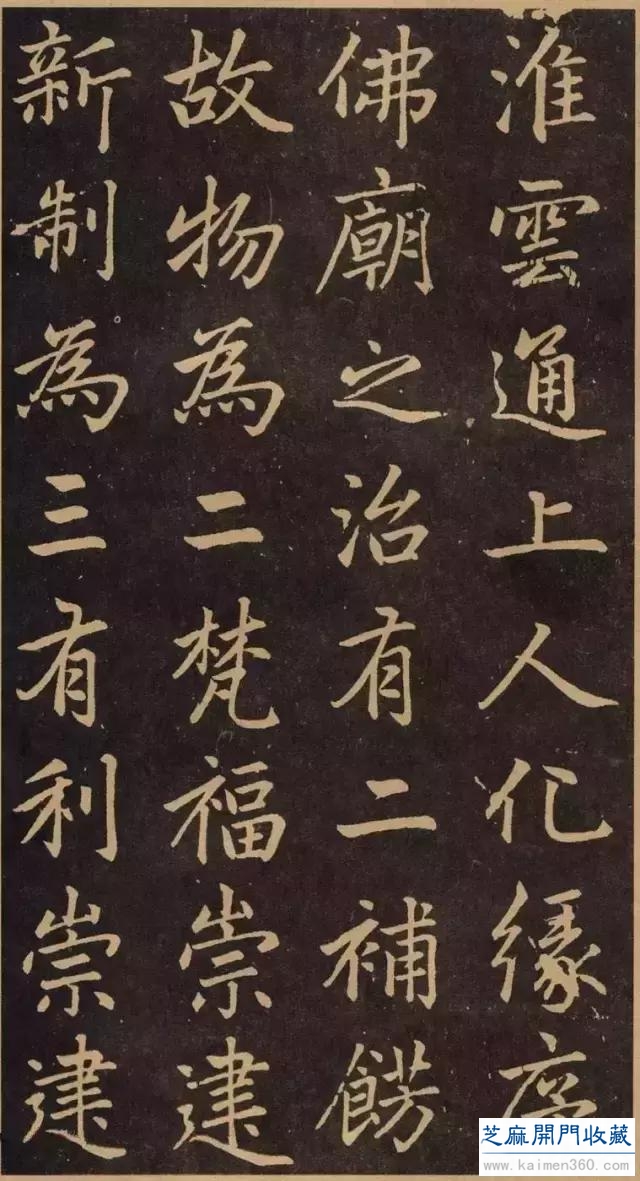 淮雲通上人化緣序
佛廟之治有二補餝
故物為二梵福崇建
新制為三有利崇建
芝麻開門收藏
www.kaimen360.com